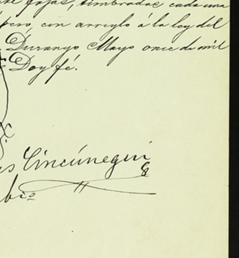 fojas, timbradas cada una
pero con arreglo á la ley del
Durango Mayo once de mil
Doy fé.
Cincúnegui